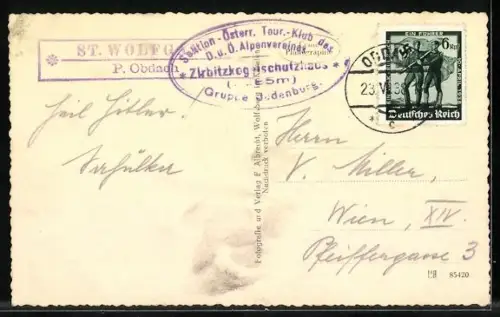 ST. WOLFG
P. Obdach
Sektion-Österr. Tour.-Klub des
D.u.Ö. Alpenvereines
* Zirbitzkogelschutzhaus *
Gruppe Judenburg
EIN FÜHRER
6
Deutsches Reich
OBDACH
23.VI.38
* c
Heil Hitler.
Herrn
V. Miller,
Wien, XIV.
Pfeiffergasse 3
Fotografie und Verlag F. Albrecht, Wolfsberg
Nachdruck verboten
85420